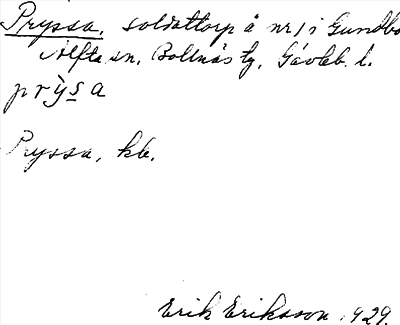 Pryssa, soldattorp å nr 1 i Gundbo
Alfta sn, Bollnäs tg, Gävleb. l.
prỳs̲a
Pryssa, kb.
Erik Eriksson 1929.